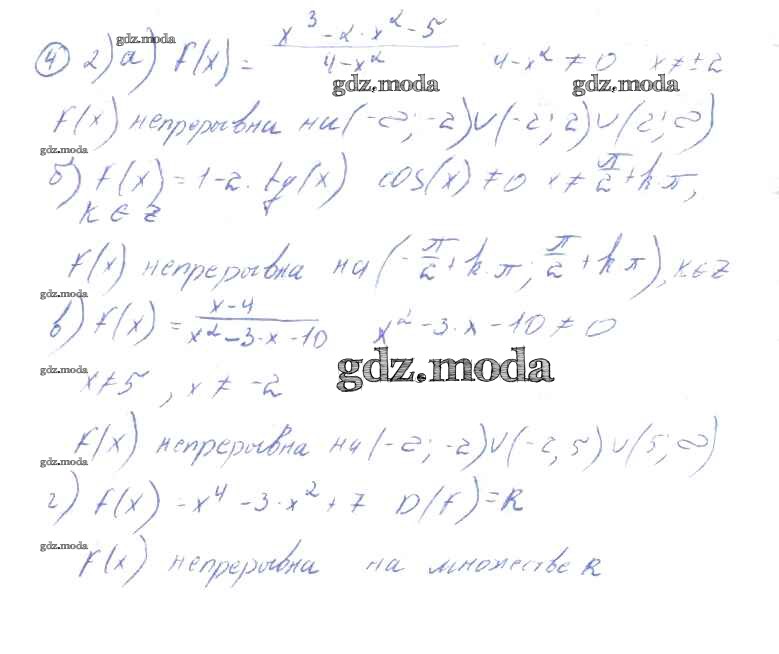 ④ 2) а) f(x) = (x³ - 2·x² - 5)/(4 - x²) 4 - x² ≠ 0 x ≠ ±2
gdz.moda
gdz.moda gdz.moda
f(x) непрерывна на (-∞; -2)∪(-2; 2)∪(2; ∞)
gdz.moda
б) f(x) = 1 - 2·tg(x) cos(x) ≠ 0 x ≠ π/2 + k·π,
k ∈ Z
f(x) непрерывна на (-π/2 + k·π; π/2 + k π), k ∈ Z
gdz.moda
в) f(x) = (x-4)/(x² - 3·x - 10) x² - 3·x - 10 ≠ 0
gdz.moda gdz.moda
x ≠ 5, x ≠ -2
f(x) непрерывна на (-∞; -2)∪(-2, 5)∪(5; ∞)
gdz.moda
г) f(x) = x⁴ - 3·x² + 7 D(f) = R
gdz.moda
f(x) непрерывна на множестве R